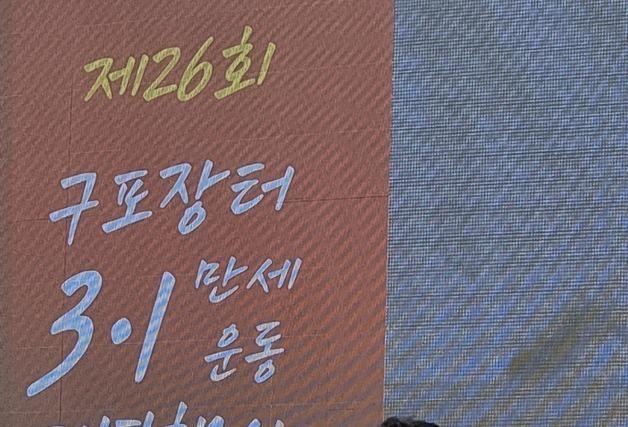 제26회
구포장터
3·1 만세
운동